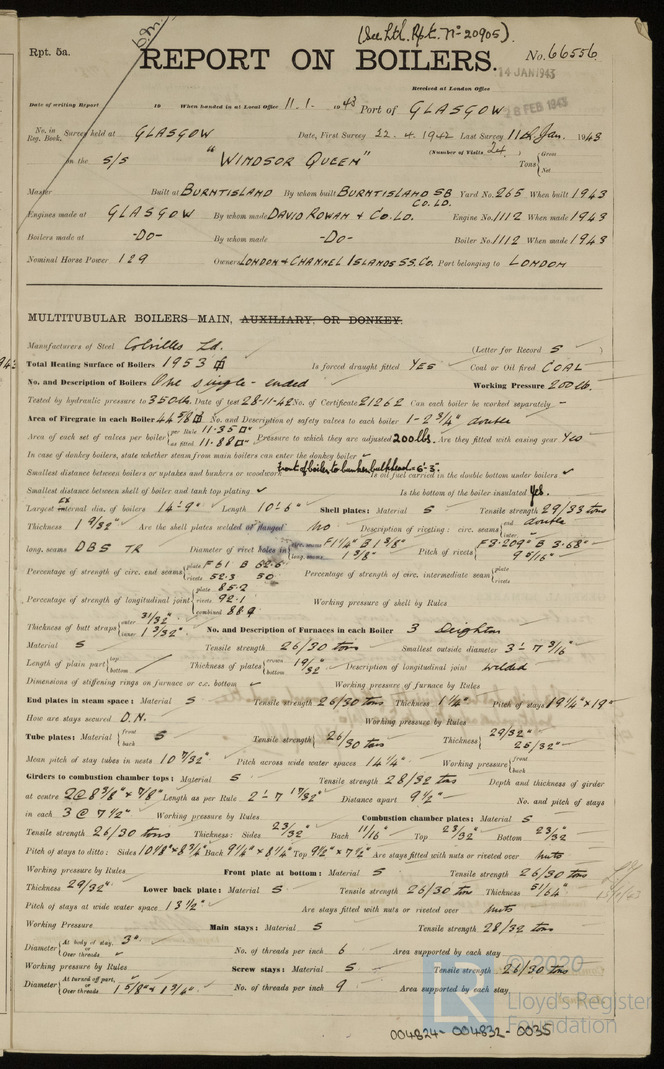 (See Lth. Rpt. No 20905).
Rpt. 5a.
REPORT ON BOILERS.
No. 66556
Received at London Office
14 JAN 1943
Date of writing Report 19 When handed in at Local Office 11.1. 1943 Port of GLASGOW
28 FEB 1943
No. in Reg. Book. Survey held at GLASGOW Date, First Survey 22.4.1942 Last Survey 11th Jan. 1943
on the S/S "WINDSOR QUEEN" (Number of Visits 24) Tons {Gross Net
Master Built at BURNTISLAND By whom built BURNTISLAND SB CO. LD. Yard No. 265 When built 1943
Engines made at GLASGOW By whom made DAVID ROWAN & CO. LD. Engine No. 1112 When made 1943
Boilers made at -DO- By whom made -DO- Boiler No. 1112 When made 1943
Nominal Horse Power 129 Owners LONDON & CHANNEL ISLANDS SS. CO. Port belonging to LONDON
MULTITUBULAR BOILERS MAIN, AUXILIARY, OR DONKEY.
Manufacturers of Steel Colvilles Ld. (Letter for Record S)
Total Heating Surface of Boilers 1953 Is forced draught fitted YES Coal or Oil fired COAL
No. and Description of Boilers One single-ended Working Pressure 200 lb.
Tested by hydraulic pressure to 350 lb. Date of test 28-11-42 No. of Certificate 21262 Can each boiler be worked separately -
Area of Firegrate in each Boiler 44.58 No. and Description of safety valves to each boiler 1-2 3/4" double
Area of each set of valves per boiler {per Rule 11.35 as fitted 11.88 Pressure to which they are adjusted 200 lbs. Are they fitted with easing gear Yes
In case of donkey boilers, state whether steam from main boilers can enter the donkey boiler ✓
Smallest distance between boilers or uptakes and bunkers or woodwork Front of boiler to bunker bulkhead = 6'-3" Is oil fuel carried in the double bottom under boilers ✓
Smallest distance between shell of boiler and tank top plating ✓ Is the bottom of the boiler insulated Yes.
Largest EX internal dia. of boilers 14'-9" Length 10'-6" Shell plates: Material S Tensile strength 29/33 tons
Thickness 1 9/32" Are the shell plates welded or flanged No Description of riveting: circ. seams {end double inter
long. seams DBS TR Diameter of rivet holes in {circ. seams F 1 1/4" B 1 3/8" long. seams 1 3/8" Pitch of rivets {F 3.209" B 3.68" 9 9/16"
Percentage of strength of circ. end seams {plate F 61 B 62.6 rivets 52.3 50 Percentage of strength of circ. intermediate seam {plate rivets
Percentage of strength of longitudinal joint {plate 85.2 rivets 92.1 combined 88.9 Working pressure of shell by Rules
Thickness of butt straps {outer 31/32" inner 1 3/32" No. and Description of Furnaces in each Boiler 3 Deighton
Material S Tensile strength 26/30 tons Smallest outside diameter 3'-7 3/16"
Length of plain part {top bottom Thickness of plates {crown bottom 19/32" Description of longitudinal joint welded
Dimensions of stiffening rings on furnace or c.c. bottom ✓ Working pressure of furnace by Rules
End plates in steam space: Material S Tensile strength 26/30 tons Thickness 1 1/4" Pitch of stays 19 1/4" x 19"
How are stays secured D.N. Working pressure by Rules
Tube plates: Material {front back S Tensile strength {26/30 tons Thickness {29/32" 25/32"
Mean pitch of stay tubes in nests 10 7/32" Pitch across wide water spaces 14 1/4" Working pressure {front back
Girders to combustion chamber tops: Material S Tensile strength 28/32 tons Depth and thickness of girder
at centre 2 @ 8 3/8" x 7/8" Length as per Rule 2'-7 17/32" Distance apart 9 1/2" No. and pitch of stays
in each 3 @ 7 1/2" Working pressure by Rules Combustion chamber plates: Material S
Tensile strength 26/30 tons Thickness: Sides 23/32" Back 11/16" Top 23/32" Bottom 23/32"
Pitch of stays to ditto: Sides 10 1/8" x 8 3/4" Back 9 1/4" x 8 1/4" Top 9 1/2" x 7 1/2" Are stays fitted with nuts or riveted over nuts
Working pressure by Rules Front plate at bottom: Material S Tensile strength 26/30 tons
Thickness 29/32" Lower back plate: Material S Tensile strength 26/30 tons Thickness 51/64"
Pitch of stays at wide water space 13 1/2" Are stays fitted with nuts or riveted over nuts
Working Pressure Main stays: Material S Tensile strength 28/32 tons
Diameter {At body of stay, or Over threads 3" No. of threads per inch 6 Area supported by each stay
Working pressure by Rules Screw stays: Material S Tensile strength 26/30 tons
Diameter {At turned off part, or Over threads 1 5/8" & 1 3/4" No. of threads per inch 9 Area supported by each stay
© 2020
LR Lloyd's Register
Foundation
004824-004832-0035